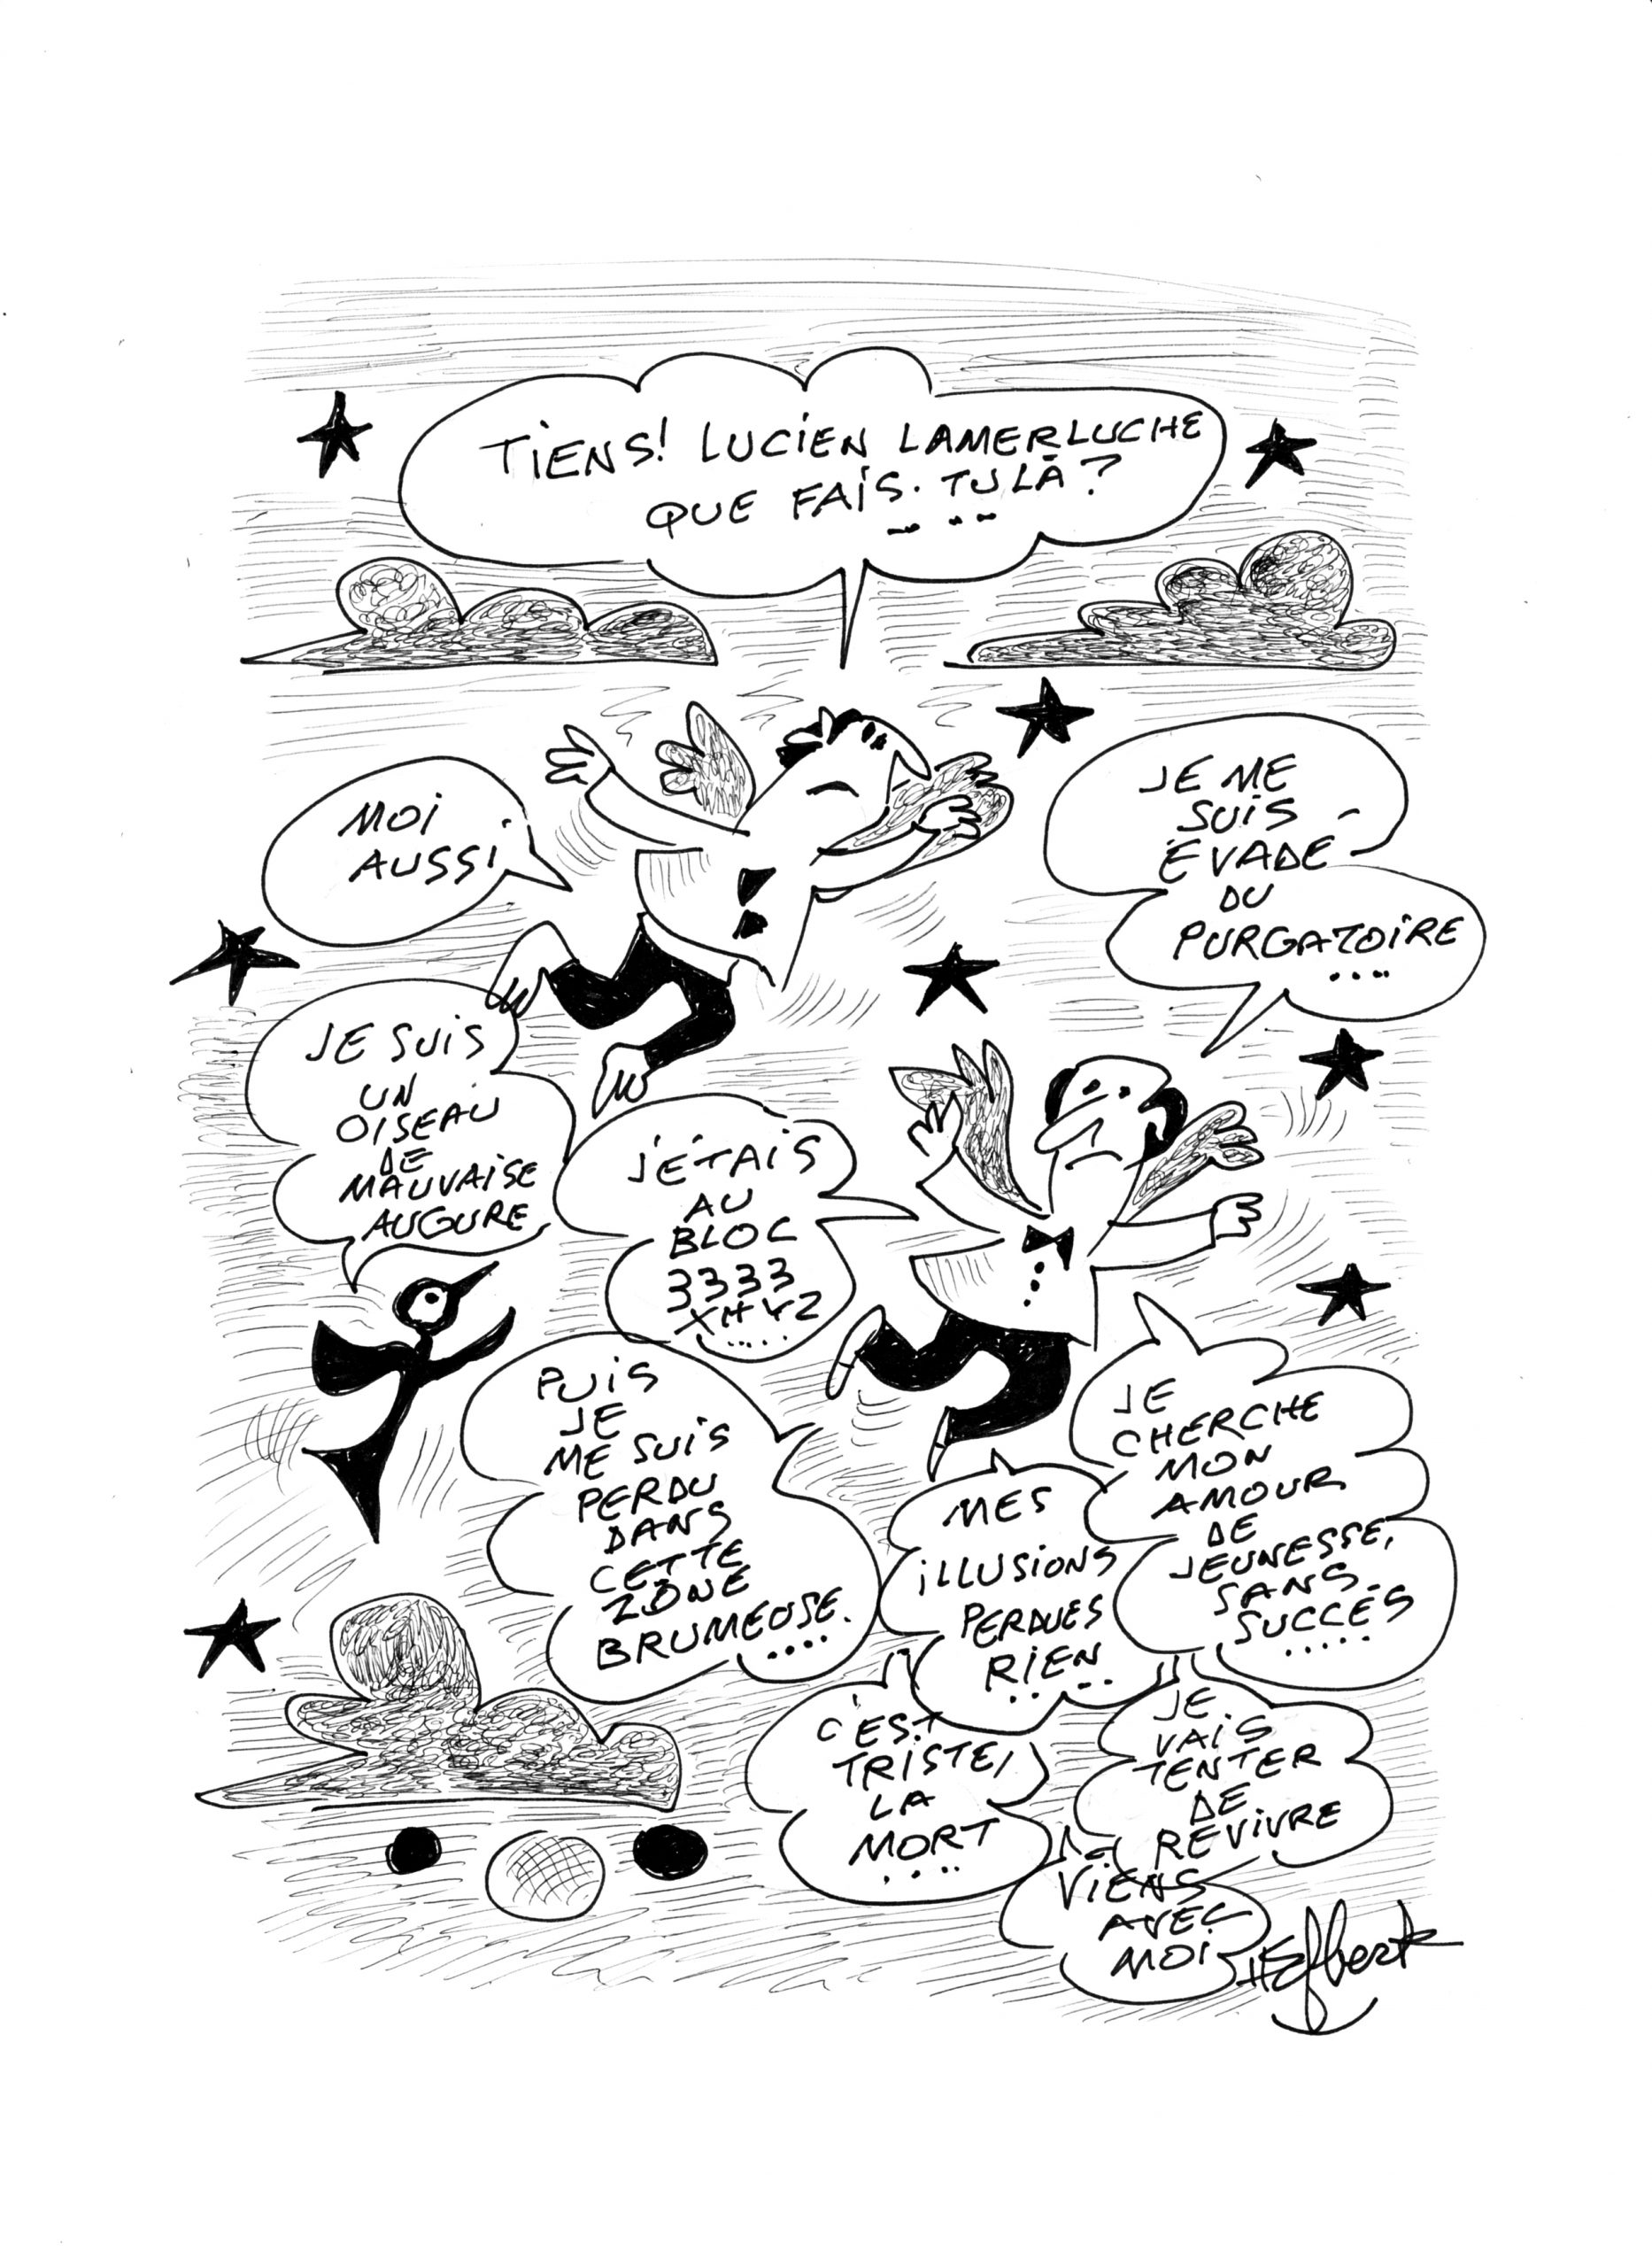 TIENS! LUCIEN LAMERLUCHE
QUE FAIS-TU LÀ?
JE ME
SUIS
ÉVADÉ
DU
PURGATOIRE
....
MOI
AUSSI
JE SUIS
UN
OISEAU
DE
MAUVAISE
AUGURE
J'ÉTAIS
AU
BLOC
3333
XHYZ
.....
PUIS
JE
ME SUIS
PERDU
DANS
CETTE
ZONE
BRUMEUSE.
....
JE
CHERCHE
MON
AMOUR
DE
JEUNESSE,
SANS
SUCCÈS
.....
MES
ILLUSIONS
PERDUES
RIEN
....
C'EST
TRISTE,
LA
MORT
....
JE
VAIS
TENTER
DE
REVIVRE
VIENS
AVEC
MOI